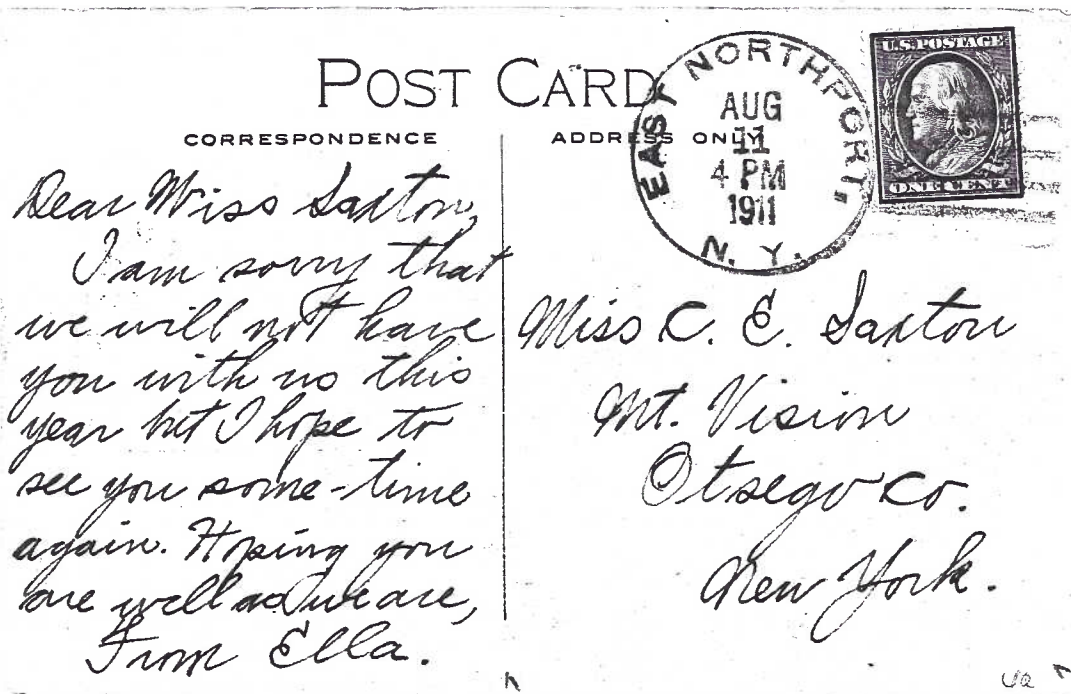 POST CARD
CORRESPONDENCE
ADDRESS ONLY
EAST NORTHPORT,
AUG
11
4 PM
1911
N. Y.
U.S. POSTAGE
ONE CENT
Dear Miss Saxton,
I am sorry that
we will not have
you with us this
year but I hope to
see you some-time
again. Hoping you
are well as we are,
From Ella.
Miss C. E. Saxton
Mt. Vision
Otsego Co.
New York.